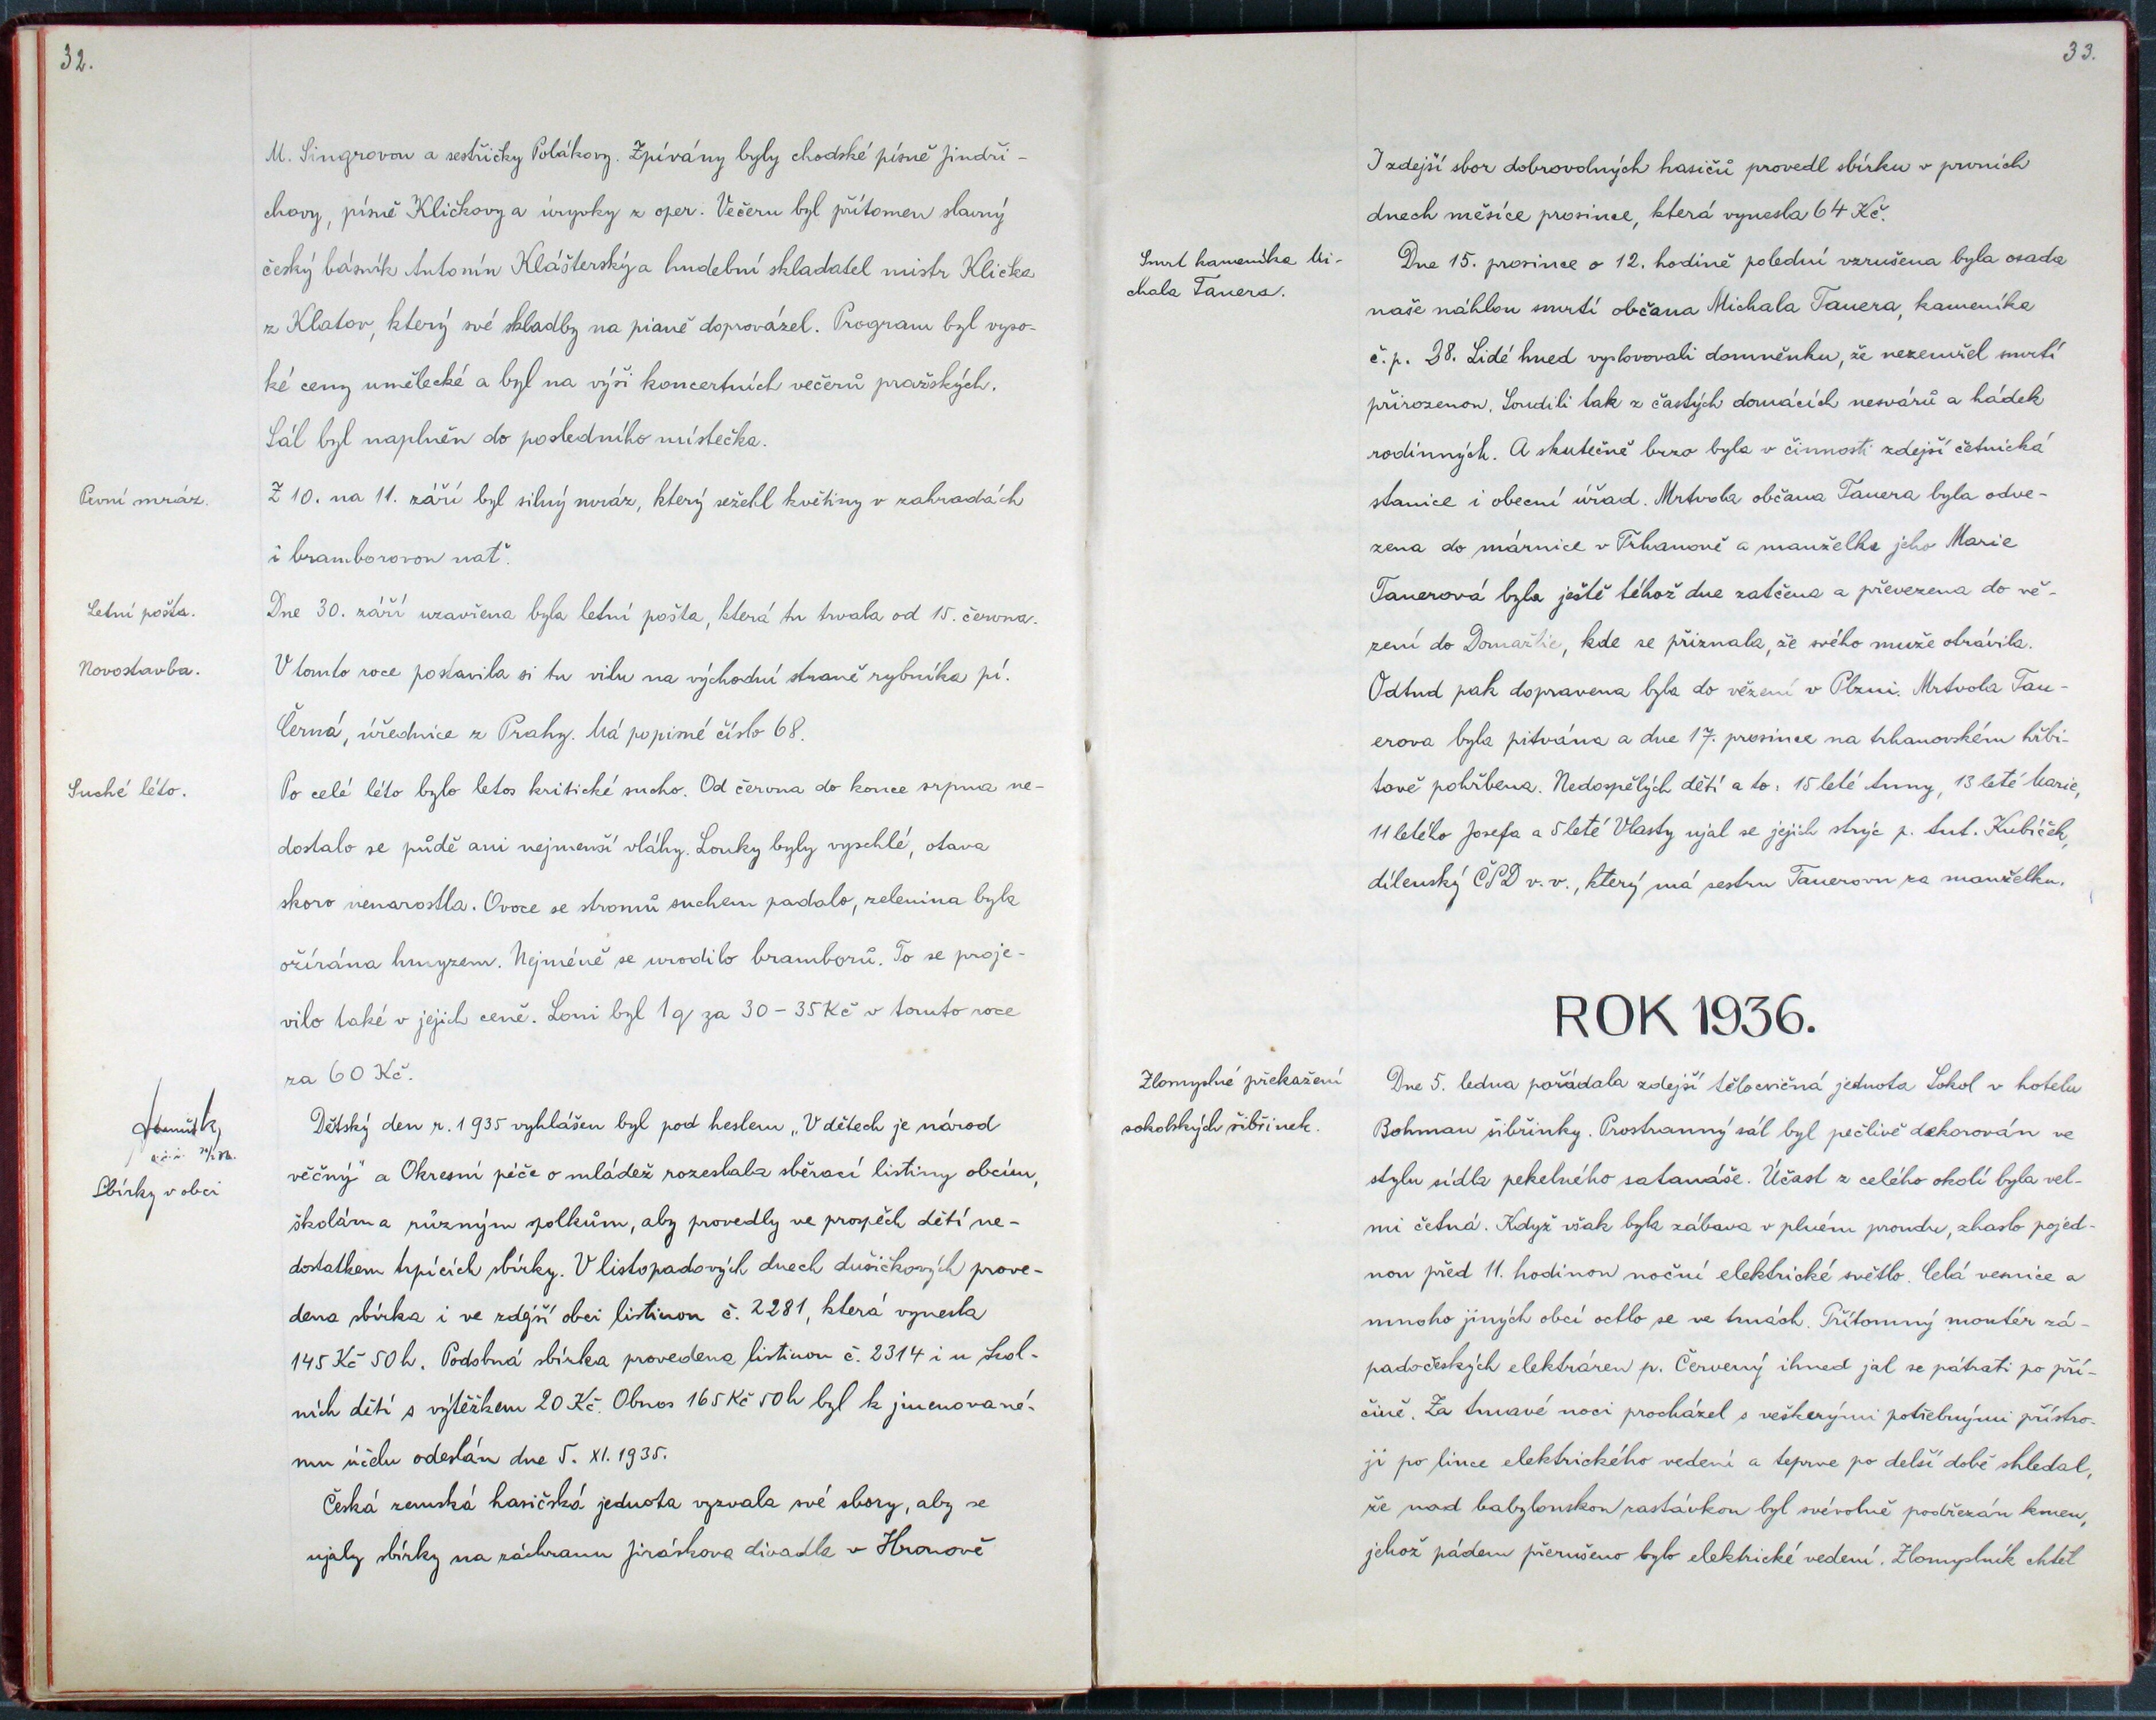 32.
M. Singrovou a sestřičky Polákovy. Zpívány byly chodské písně Jindři-
chovy, písně Kličkovy a úryvky z oper. Večeru byl přítomen slavný
český básník Antonín Klášterský a hudební skladatel mistr Klička
z Klatov, který své skladby na pianě doprovázel. Program byl vyso-
ké ceny umělecké a byl na výši koncertních večerů pražských.
Sál byl naplněn do posledního místečka.
První mráz.
Z 10. na 11. září byl silný mráz, který sežehl květiny v zahradách
i bramborovou nať.
Letní pošta.
Dne 30. září uzavřena byla letní pošta, která tu trvala od 15. června.
Novostavba.
V tomto roce postavila si tu vilu na východní straně rybníka pí.
Černá, úřednice z Prahy. Má popisné číslo 68.
Suché léto.
Po celé léto bylo letos kritické sucho. Od června do konce srpna ne-
dostalo se půdě ani nejmenší vláhy. Louky byly vyschlé, otava
skoro nenarostla. Ovoce se stromů suchem padalo, zelenina byla
ožírána hmyzem. Nejméně se urodilo bramborů. To se proje-
vilo také v jejich ceně. Loni byl 1 q za 30 - 35 Kč v tomto roce
za 60 Kč.
Sbírky v obci
Dětský den r. 1935 vyhlášen byl pod heslem „V dětech je národ
věčný" a Okresní péče o mládež rozeslala sběrací listiny obcím,
školám a různým spolkům, aby provedly ve prospěch dětí ne-
dostatkem trpících sbírky. V listopadových dnech dušičkových prove-
dena sbírka i ve zdejší obci listinou č. 2281, která vynesla
145 Kč 50 h. Podobná sbírka provedena listinou č. 2314 i u škol-
ních dětí s výtěžkem 20 Kč. Obnos 165 Kč 50 h byl k jmenované-
mu účelu odeslán dne 5. XI. 1935.
Česká zemská hasičská jednota vyzvala své sbory, aby se
ujaly sbírky na záchranu Jiráskova divadla v Hronově
33.
I zdejší sbor dobrovolných hasičů provedl sbírku v prvních
dnech měsíce prosince, která vynesla 64 Kč.
Smrt kameníka Mi-
chala Tauera.
Dne 15. prosince o 12. hodině polední vzrušena byla osada
naše náhlou smrtí občana Michala Tauera, kameníka
č.p. 38. Lidé hned vyslovovali domněnku, že nezemřel smrtí
přirozenou. Soudili tak z častých domácích nesvárů a hádek
rodinných. A skutečně brzo byla v činnosti zdejší četnická
stanice i obecní úřad. Mrtvola občana Tauera byla odve-
zena do márnice v Trhanově a manželka jeho Marie
Tauerová byla ještě téhož dne zatčena a převezena do vě-
zení do Domažlic, kde se přiznala, že svého muže otrávila.
Odtud pak dopravena byla do vězení v Plzni. Mrtvola Tau-
erova byla pitvána a dne 17. prosince na trhanovském hřbi-
tově pohřbena. Nedospělých dětí a to: 15 leté Anny, 13 leté Marie,
11 letého Josefa a 5 leté Vlasty ujal se jejich strýc p. Ant. Kubíček,
dílenský ČSD v. v., který má sestru Tauerovu za manželku.
ROK 1936.
Zlomyslné překažení
sokolských šibřinek.
Dne 5. ledna pořádala zdejší tělocvičná jednota Sokol v hotelu
Bohman šibřinky. Prostranný sál byl pečlivě dekorován ve
stylu sídla pekelného satanáše. Účast z celého okolí byla vel-
mi četná. Když však byla zábava v plném proudu, zhaslo pojed-
nou před 11. hodinou noční elektrické světlo. Celá vesnice a
mnoho jiných obcí octlo se ve tmách. Přítomný montér zá-
padočeských elektráren p. Červený ihned jal se pátrati po pří-
čině. Za tmavé noci procházel s veškerými potřebnými přístro-
ji po lince elektrického vedení a teprve po delší době shledal,
že nad babylonskou zastávkou byl svévolně podřezán kmen,
jehož pádem přerušeno bylo elektrické vedení. Zlomyslník chtěl